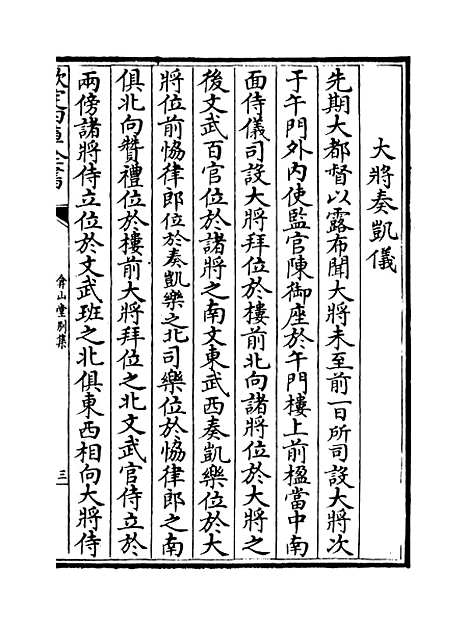 大將奏凱儀
先期大都督以露布聞大將未至前一日所司設大將次
于午門外内使監官陳御座於午門樓上前楹當中南
面侍儀司設大將拜位於樓前北向諸將位於大將之
後文武百官位於諸將之南文東武西奏凱樂位於大
將位前恊律郎位於奏凱樂之北司樂位於恊律郎之南
俱北向贊禮位於樓前大將拜位之北文武官侍立於
兩傍諸將侍立位於文武班之北俱東西相向大將侍
欽定四庫全書
弇山堂别集
三